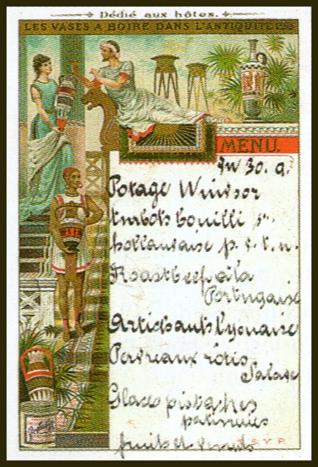 Dédié aux hôtes.
LES VASES A BOIRE DANS L'ANTIQUITÉ
MENU.
30. 9.
Potage Windsor
turbots bouilli s.
hollandaise p. s. t. n.
Roastbeef à la
Portugaise
Artichauts lyonaise
Perdreaux rôtis
Salade
Glaces pistaches
fruits et
S.V.P.